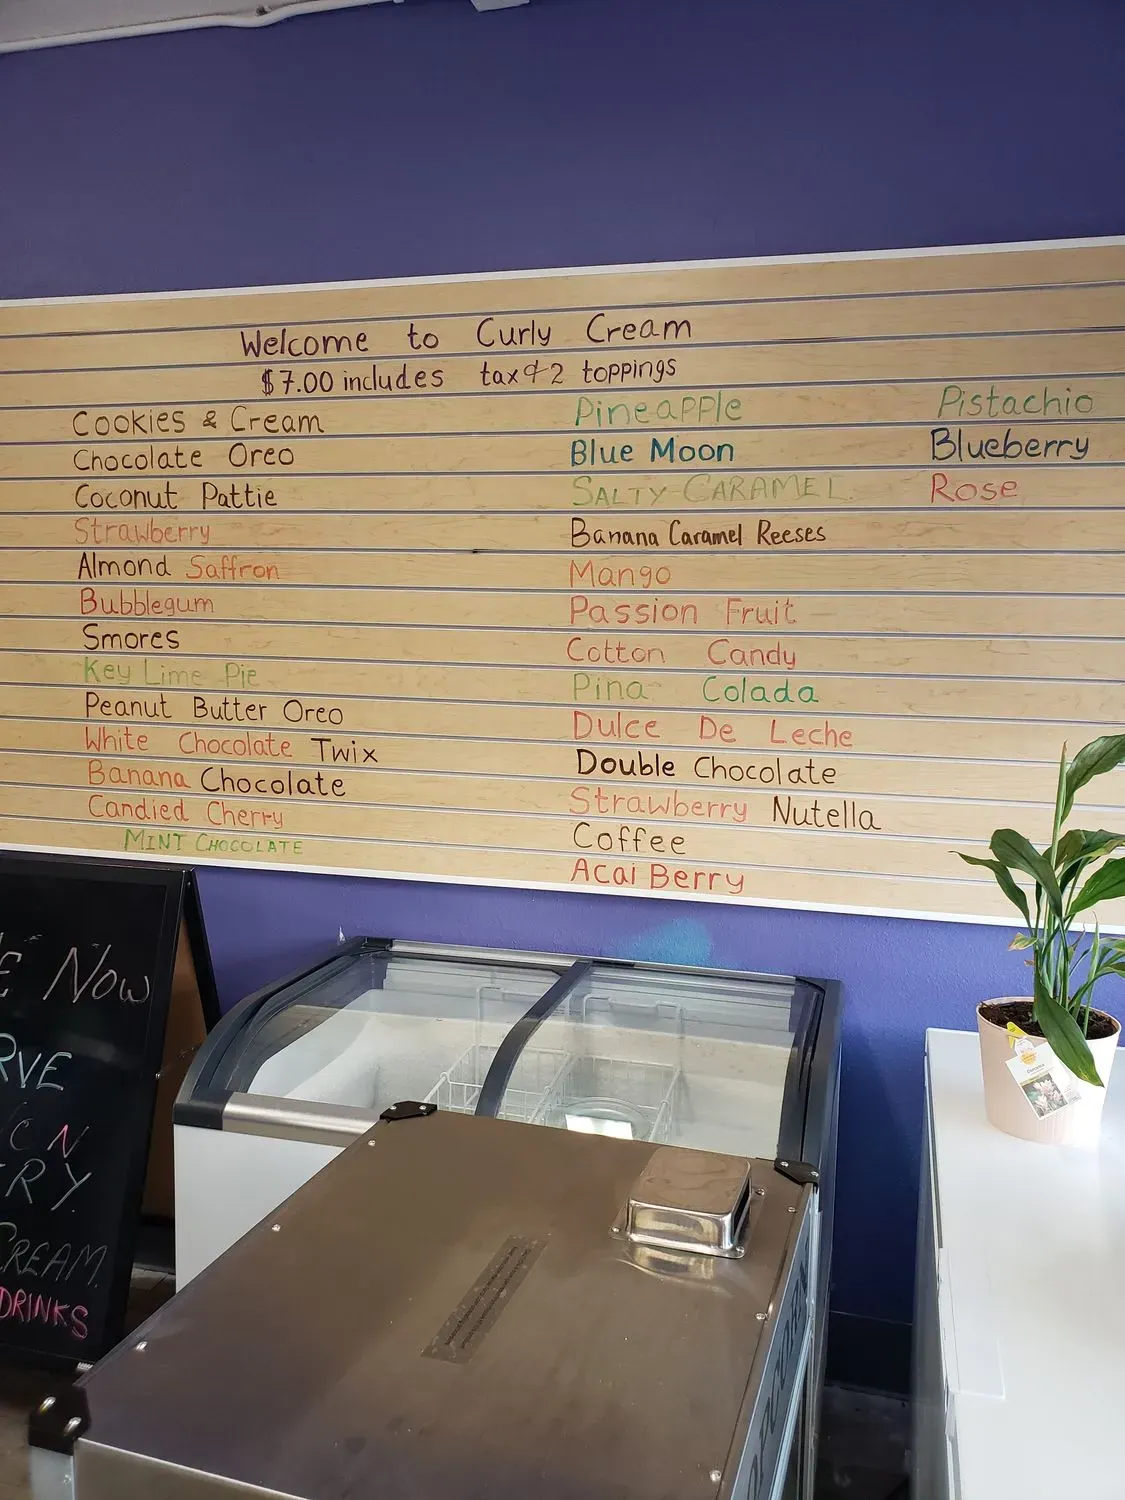 Welcome to Curly Cream
$7.00 includes tax & 2 toppings
Cookies & Cream
Chocolate Oreo
Coconut Pattie
Strawberry
Almond Saffron
Bubblegum
Smores
Key Lime Pie
Peanut Butter Oreo
White Chocolate Twix
Banana Chocolate
Candied Cherry
MINT CHOCOLATE
Pineapple
Blue Moon
SALTY CARAMEL
Banana Caramel Reeses
Mango
Passion Fruit
Cotton Candy
Pina Colada
Dulce De Leche
Double Chocolate
Strawberry Nutella
Coffee
Acai Berry
Pistachio
Blueberry
Rose
NOW
RVE
RY.
CREAM.
DRINKS